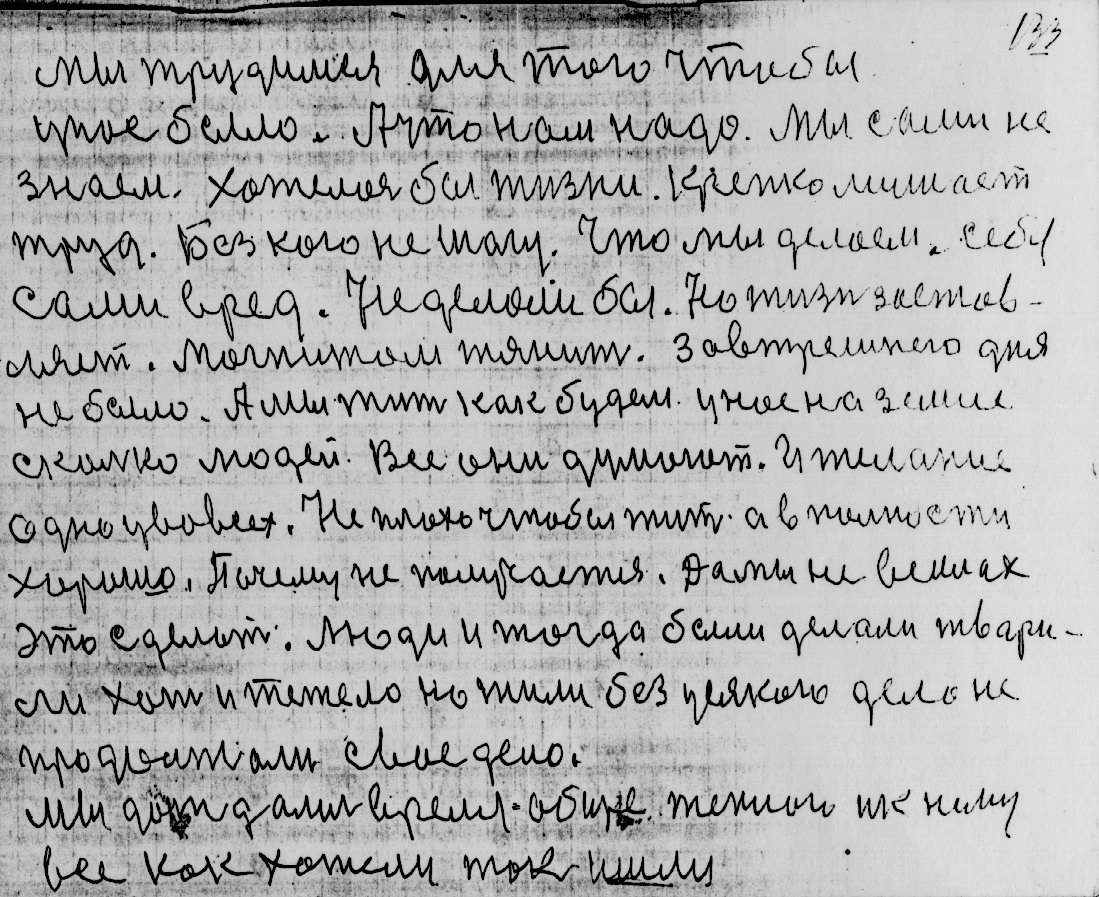 133
мы трудимся для того чтобы
унас было. А что нам надо. Мы сами не
знаем. хотелося бы жизни. Крепко мишает
труд. Без кого не шагу. Что мы делаем. себе
сами вред. Не делали бы. Но жизн застав-
ляет. Магнитом тянит. Завтрешнего дня
не было. А мы жит как будем. унас на земле
сколко людей. Все они думают. И желание
одно уво всех. Не плохо чтобы жит. а в полности
хорошо. Почему не получается. Да мы не в силах
это сделат. Люди и тогда были делали твари-
ли хот и тежело но жили без усякого дела не
продолжали свое дело.
мы дождали время. обще. и к нему
все как хотели так и шли